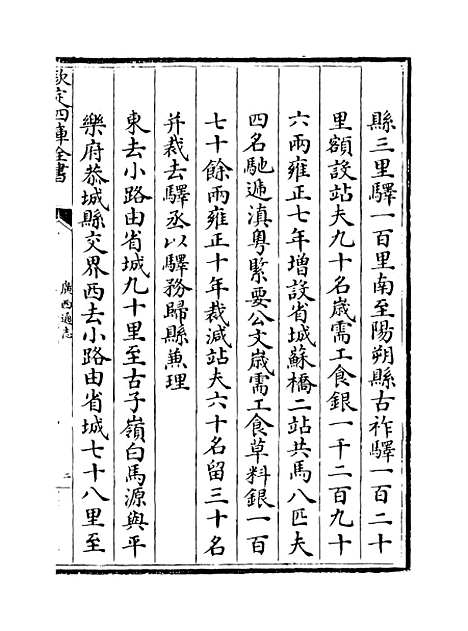 縣三里驛一百里南至陽朔縣古祚驛一百二十
里額設站夫九十名嵗需工食銀一千二百九十
六兩雍正七年增設省城蘇橋二站共馬八匹夫
四名馳遞滇粵緊要公文嵗需工食草料銀一百
七十餘兩雍正十年裁減站夫六十名留三十名
并裁去驛丞以驛務歸縣兼理
東去小路由省城九十里至古子嶺白馬源與平
樂府恭城縣交界西去小路由省城七十八里至
欽定四庫全書
廣西通志